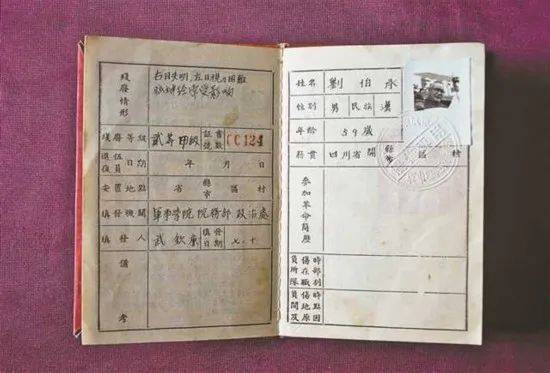 殘廢情形
右目失明,左目視力困難
殘廢等級 貳等甲級 証書號數 CC124
退伍復員日期 年 月 日
安置地點 省 縣市 區 村
填發機關 軍事學院院務部政治處
填發人 武欽 填發日期 七.十
備考
姓名 劉伯承
性別 男 民族 漢
年齡 59歲
籍貫 四川省開縣市 區 村
參加革命簡歷
負傷時所在部隊職別
負傷時間地點及原因